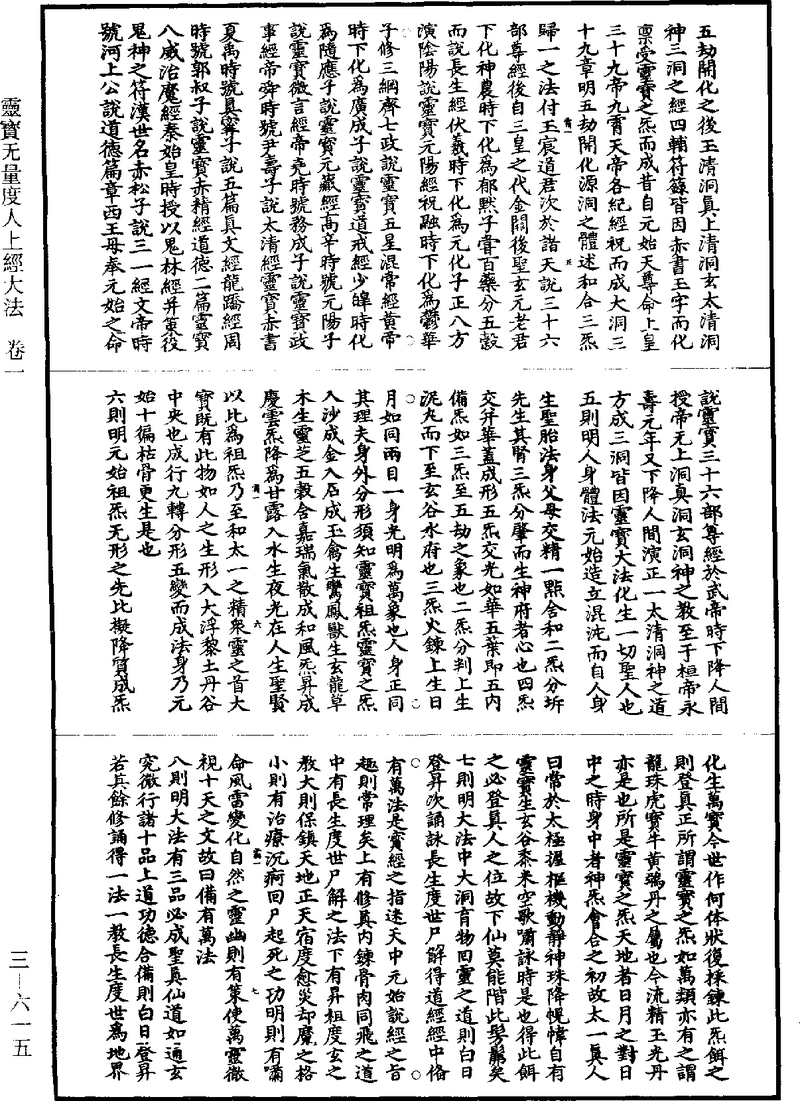 五劫開化之後玉清洞真上清洞玄太清洞
神三洞之經四輔符籙皆因赤書玉字而化
禀受靈寶之炁而成昔自元始天尊命上皇
三十九帝九霄天帝各紀經祝而成大洞三
十九章明五劫開化源洞之體述和合三炁
歸一之法付玉宸道君次於諸天說三十六
部尊經後自三皇之代金闕後聖玄元老君
下化神農時下化為郁默子嘗百藥分五穀
而說長生經伏羲時下化為元化子正八方
演陰陽說靈寶元陽經祝融時下化為鬱華
子修三綱齊七政說靈寶五星混常經黄帝
時下化為廣成子說靈寶道戒經少皥時化
為隨應子說靈寶元藏經高辛時號元陽子
說靈寶微言經帝堯時號務成子說靈寶政
事經帝舜時號尹壽子說太清經靈寶赤書
夏禹時號真寗子說五篇真文經龍蹻經周
時號郭叔子說靈寶赤精經道德二篇靈寶
八威治魔經秦始皇時授以鬼林經并策役
鬼神之符漢世名赤松子說三一經文帝時
號河上公說道德篇章西王母奉元始之命
說靈寶三十六部尊經於武帝時下降人間
授帝元上洞真洞玄洞神之教至于桓帝永
壽元年又下降人間演正一太清洞神之道
方成三洞皆因靈寶大法化生一切聖人也
五則明人身體法元始造立混沌而自人身
生聖胎法身父母交精一點含和二炁分坼
先生其腎三炁分肇而生神府者心也四炁
交并華蓋成形五炁交光如華五葉即五内
備炁如三炁至五劫之象也二炁分判上生
泥丸而下至玄谷水府也三炁火鍊上生日
月如同兩目一身光明為萬象也人身正同
其理夫身外分形須知靈寶祖炁靈寶之炁
入沙成金入石成玉禽生鸞鳳獸生玄龍草
木生靈芝五穀合嘉瑞氣散成和風炁昇成
慶雲炁降為甘露入水生夜光在人生聖賢
以比為祖炁乃至和太一之精衆靈之首大
寶既有此物如人之生形入大浮黎土丹谷
中央也成行九轉分形五變而成法身乃元
始十徧枯骨更生是也
六則明元始祖炁无形之先比擬降質成炁
化生萬寶今世作何体狀復採鍊此炁餌之
則登真正所謂靈寶之炁如萬類亦有之謂
龍珠虎寶牛黄鵶丹之屬也今流精玉光丹
亦是也所是靈寶之炁天地者日月之對日
中之時身中者神炁會合之初故太一真人
曰常於太極握樞機動静神珠降幌幃自有
靈寶生玄谷黍米空歌嘯詠時是也得此餌
之必登真人之位故下仙莫能階此髣髴矣
七則明大法中大洞育物回靈之道則白日
登昇次誦詠長生度世尸解得道經經中俻
有萬法是寶經之指迷天中元始說經之旨
趣則常理矣上有修真内鍊骨肉同飛之道
中有長生度世尸解之法下有昇祖度玄之
教大則保鎮天地正天宿度愈災却魔之格
小則有治療沉痾回尸起死之功明則有嘯
命風雷變化自然之靈幽則有策使萬靈徼
祝十天之文故曰備有萬法
八則明大法有三品必成聖真仙道如通玄
究微行諸十品上道功德合備則白日登昇
若其餘修誦得一法一教長生度世為地界
靈寶无量度人上經大法　卷一
三—六一五